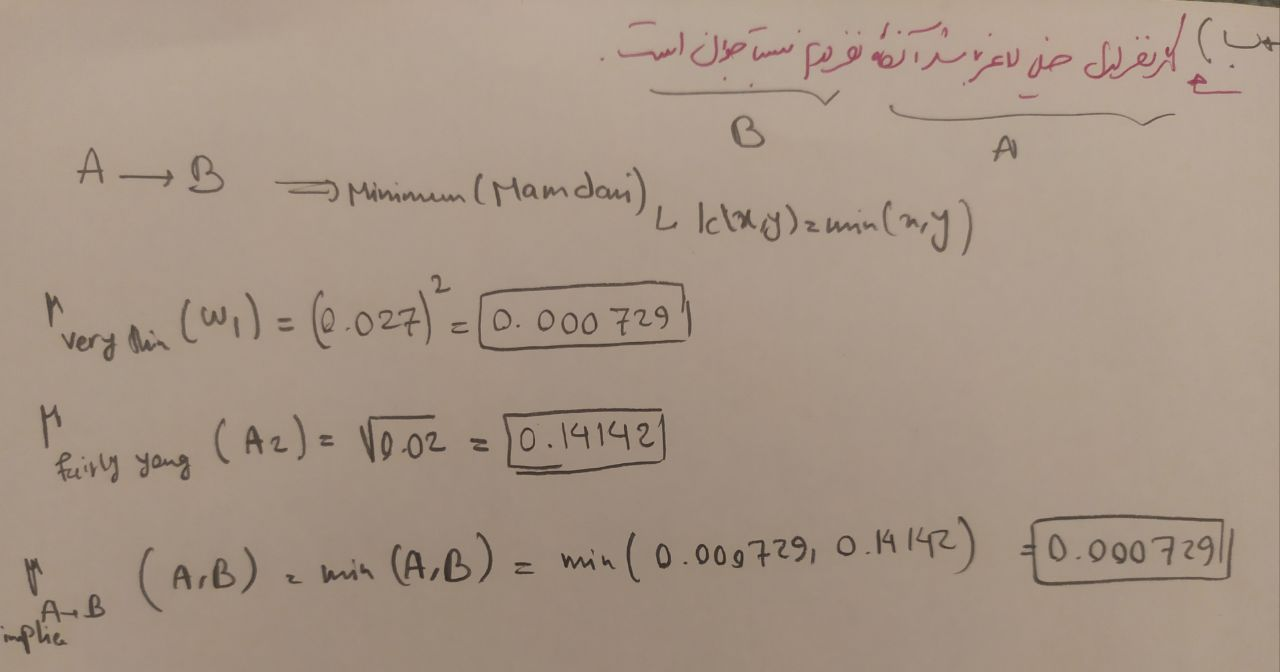 ب) اگر نفر اول خیلی لاغر باشد آنگاه نفر دوم نسبتا جوان است.
B A
A → B ⇒ Minimum (Mamdani) ↳ k(x,y) = min(x,y)
μ very thin (W1) = (0.027)^2 = 0.000729
μ fairly yong (A2) = √0.02 = 0.14142
μ A→B implies (A,B) = min (A,B) = min( 0.000729, 0.14142) = 0.000729